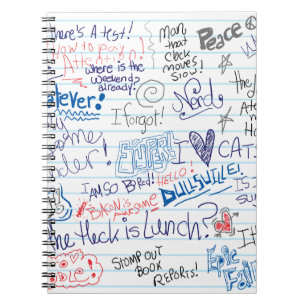 here's A test!
How to pay
Attention
where is the
weekend
already!
Man
that
clock
moves
slow!
Peace
atever!
I forgot!
Nerd
I
CAT
I Am SO Bored!
HELLO!
DULLSVILLE!
BACON is
AWESOME
he Heck is Lunch?
STOMP OUT
BOOK
REPORTS!
Epic
Fail